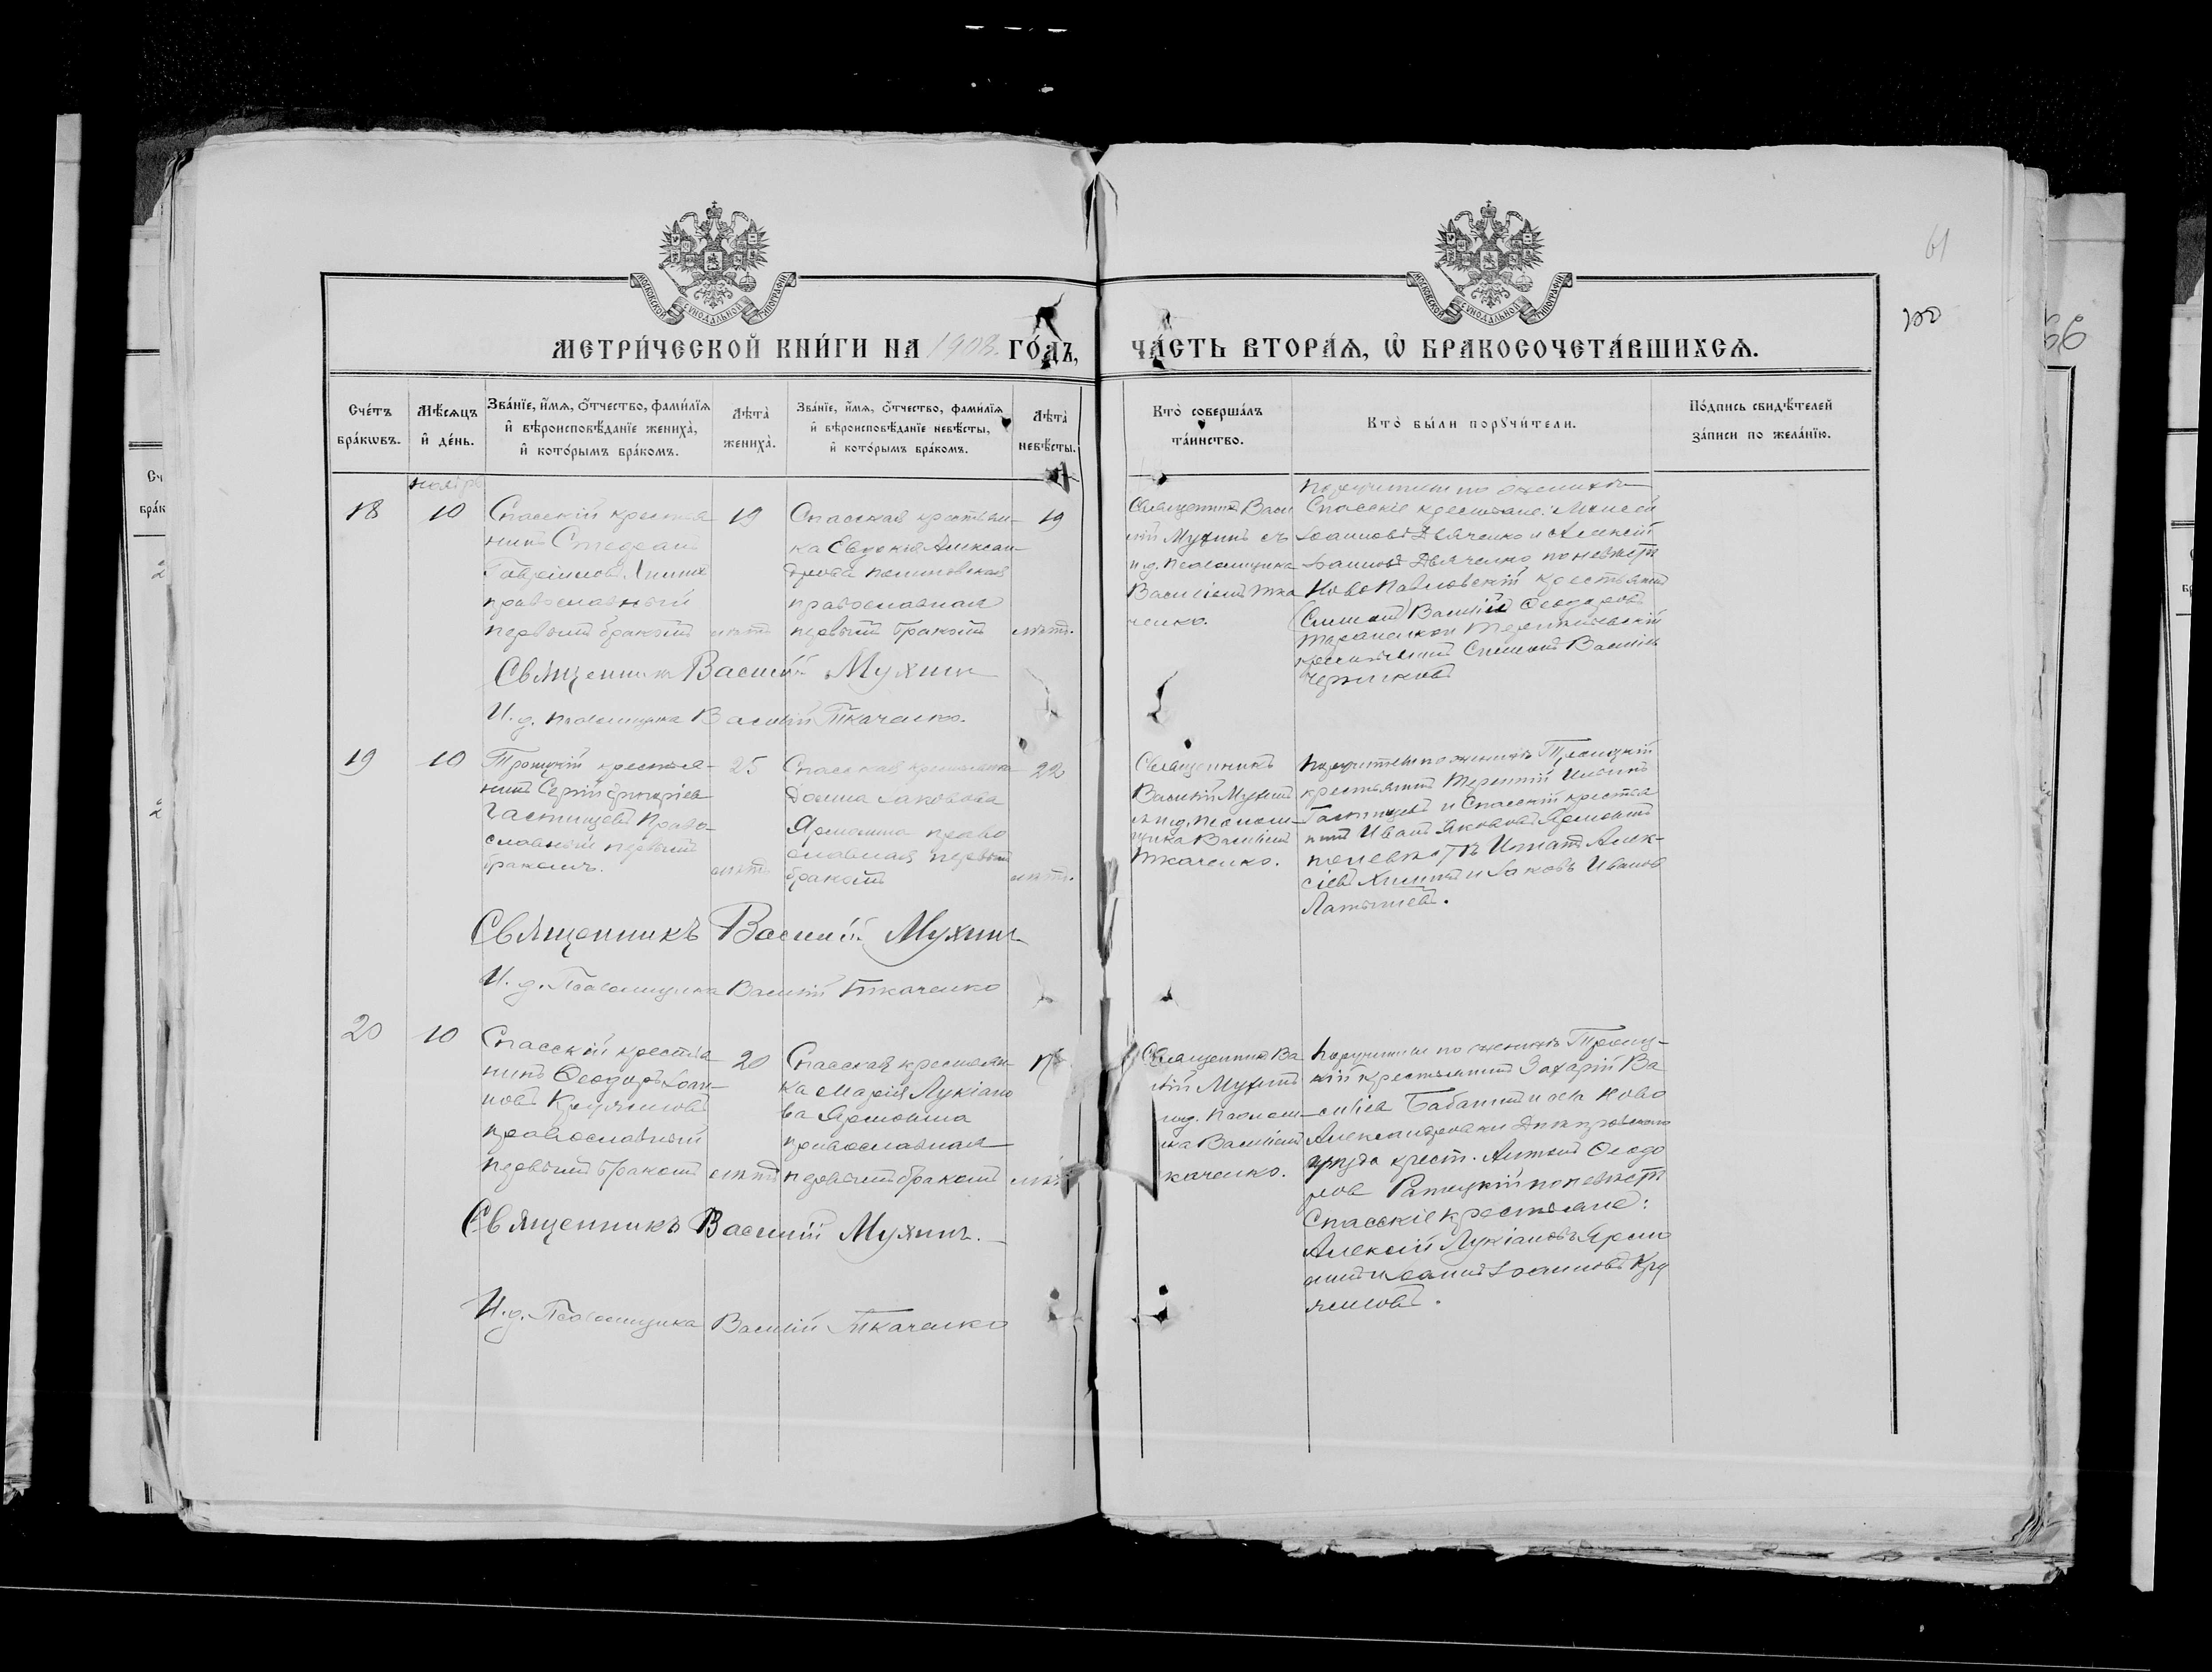 61
100
66
МОСКОВСКОЙ СѴНОДАЛЬНОЙ ТИПОГРАФІИ
МОСКОВСКОЙ СѴНОДАЛЬНОЙ ТИПОГРАФІИ
МЕТРИ́ЧЕСКОЙ КНИ́ГИ НА 1908. ГО́ДЪ,
ЧА́СТЬ ВТОРА́Ѧ, Ѽ БРАКОСОЧЕТА́ВШИХСѦ.
Сче́тъ
бра́кѡвъ.
Мѣ́сѧцъ
и҆ де́нь.
Зва́нїе, и҆́мѧ, ѻ҆́тчество, фами́лїѧ
и҆ вѣроисповѣ́данїе жениха̀,
и҆ кото́рымъ бра́комъ.
Лѣта̀
жениха̀.
Зва́нїе, и҆́мѧ, ѻ҆́тчество, фами́лїѧ
и҆ вѣроисповѣ́данїе невѣ́сты,
и҆ кото́рымъ бра́комъ.
Лѣта̀
невѣ́сты.
Кто̀ соверша́лъ
та́инство.
Кто̀ бы́ли порꙋчи́тели.
По́дпись свидѣ́телей
за́писи по жела́нїю.
18
ноября
10
Спасскій крестья
нинъ Стефанъ
православный
первымъ бракомъ
19
лѣтъ
Спасская крестьян-
ка Евдокія Алексан-
православная
первымъ бракомъ
19
лѣтъ.
Священникъ Васи
лій Мухинъ съ
и.д. псаломщика
Василіемъ Тка
ченко.
Поручители по женихѣ
Спасскіе крестьяне: Моисей
Іоанновъ Дьяченко и Алексій
Іоанновъ Дьяченко, по невѣстѣ
Ново Павловскій крестьянинъ
(Симеонъ) Василій Ѳеодоровъ
крестьянинъ Симеонъ Василіевъ
Священникъ Василій Мухинъ
И. д. псаломщика Василій Ткаченко.
19
10
Троицкій крестья-
нинъ Сергій Григоріевъ
Гастищевъ Право-
славный первымъ
бракомъ.
25
лѣтъ
Спасская крестьянка
Домна Іаковова
Ярмонина право
славная первымъ
бракомъ
22
лѣтъ.
Священникъ
Василій Мухинъ
и и.д. псалом-
щика Василіемъ
Ткаченко.
Поручители по женихѣ Троицкій
крестьянинъ Терентій
и Спасскій крестья
нинъ Иванъ Яковлевъ Ярмонинъ
по невѣстѣ Игнатъ Алек-
сіевъ и Іаковъ Ивановъ
Латышевъ.
Священникъ Василій Мухинъ
И. д. Псаломщика Василій Ткаченко
20
10
Спасскій крестья
нинъ Ѳеодоръ Іоан-
новъ
православный
первымъ бракомъ
20
лѣтъ
Спасская крестьян-
ка Марія Лукіано
ва Ярмонина
православная
первымъ бракомъ
лѣтъ
Священникъ Ва
лій Мухинъ
и.д. Псалом-
ка Василіемъ
каченко.
Поручители по женихѣ Троиц-
кій крестьянинъ Захарій Ва
силіевъ Бабанинъ и села Ново
Александровки
уѣзда крест. Антонъ Ѳеодо
ровъ по невѣстѣ
Спасскіе крестьяне:
Алексій Лукіановъ Ярмо
нинъ и Іоаннъ Іоанновъ
Священникъ Василій Мухинъ.
И.д. Псаломщика Василій Ткаченко